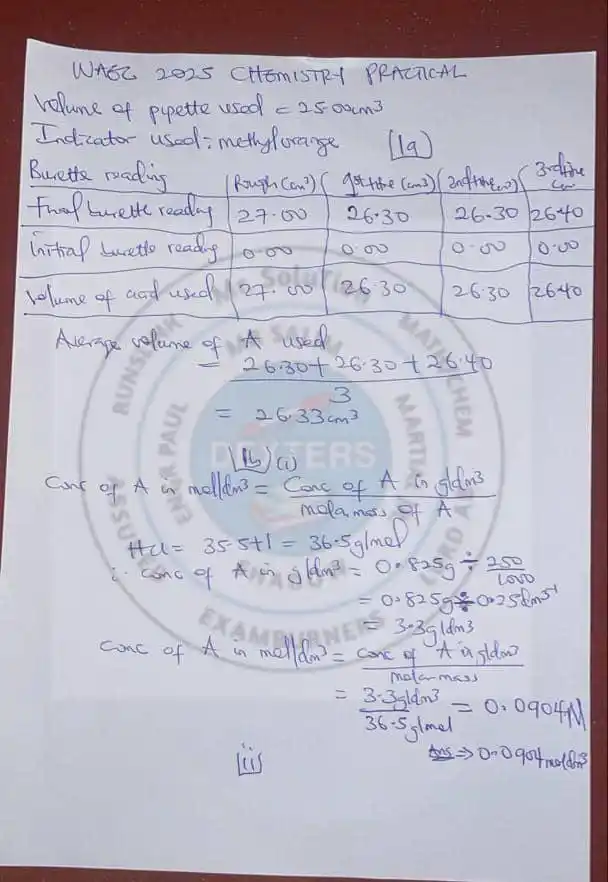 WAEC 2025 CHEMISTRY PRACTICAL
Volume of pipette used = 25.00cm3
Indicator used: methyl orange
[1a]
Burette reading | Rough (cm3) | 1st titre (cm3) | 2nd titre (cm3) | 3rd titre cm3
Final burette reading | 27.00 | 26.30 | 26.30 | 26.40
Initial burette reading | 0.00 | 0.00 | 0.00 | 0.00
Volume of acid used | 27.00 | 26.30 | 26.30 | 26.40
Average volume of A used
= 26.30 + 26.30 + 26.40
3
= 26.33cm3
[1b](i)
Conc of A in mol/dm3 = Conc of A in g/dm3
molar mass of A
HCl = 35.5+1 = 36.5g/mol
∴ conc of A in g/dm3 = 0.825g ÷ 250
1000
= 0.825g ÷ 0.25dm3
= 3.3g/dm3
conc of A in mol/dm3 = conc of A in g/dm3
molar mass
= 3.3g/dm3 = 0.0904M
36.5g/mol
Ans ⇒ 0.0904mol/dm3
[ii]
DEXTERS
EXAMBURNERS
MR SALAM
MARTI
MATH
CHEM
RUNSPARK
PAUL
Solution